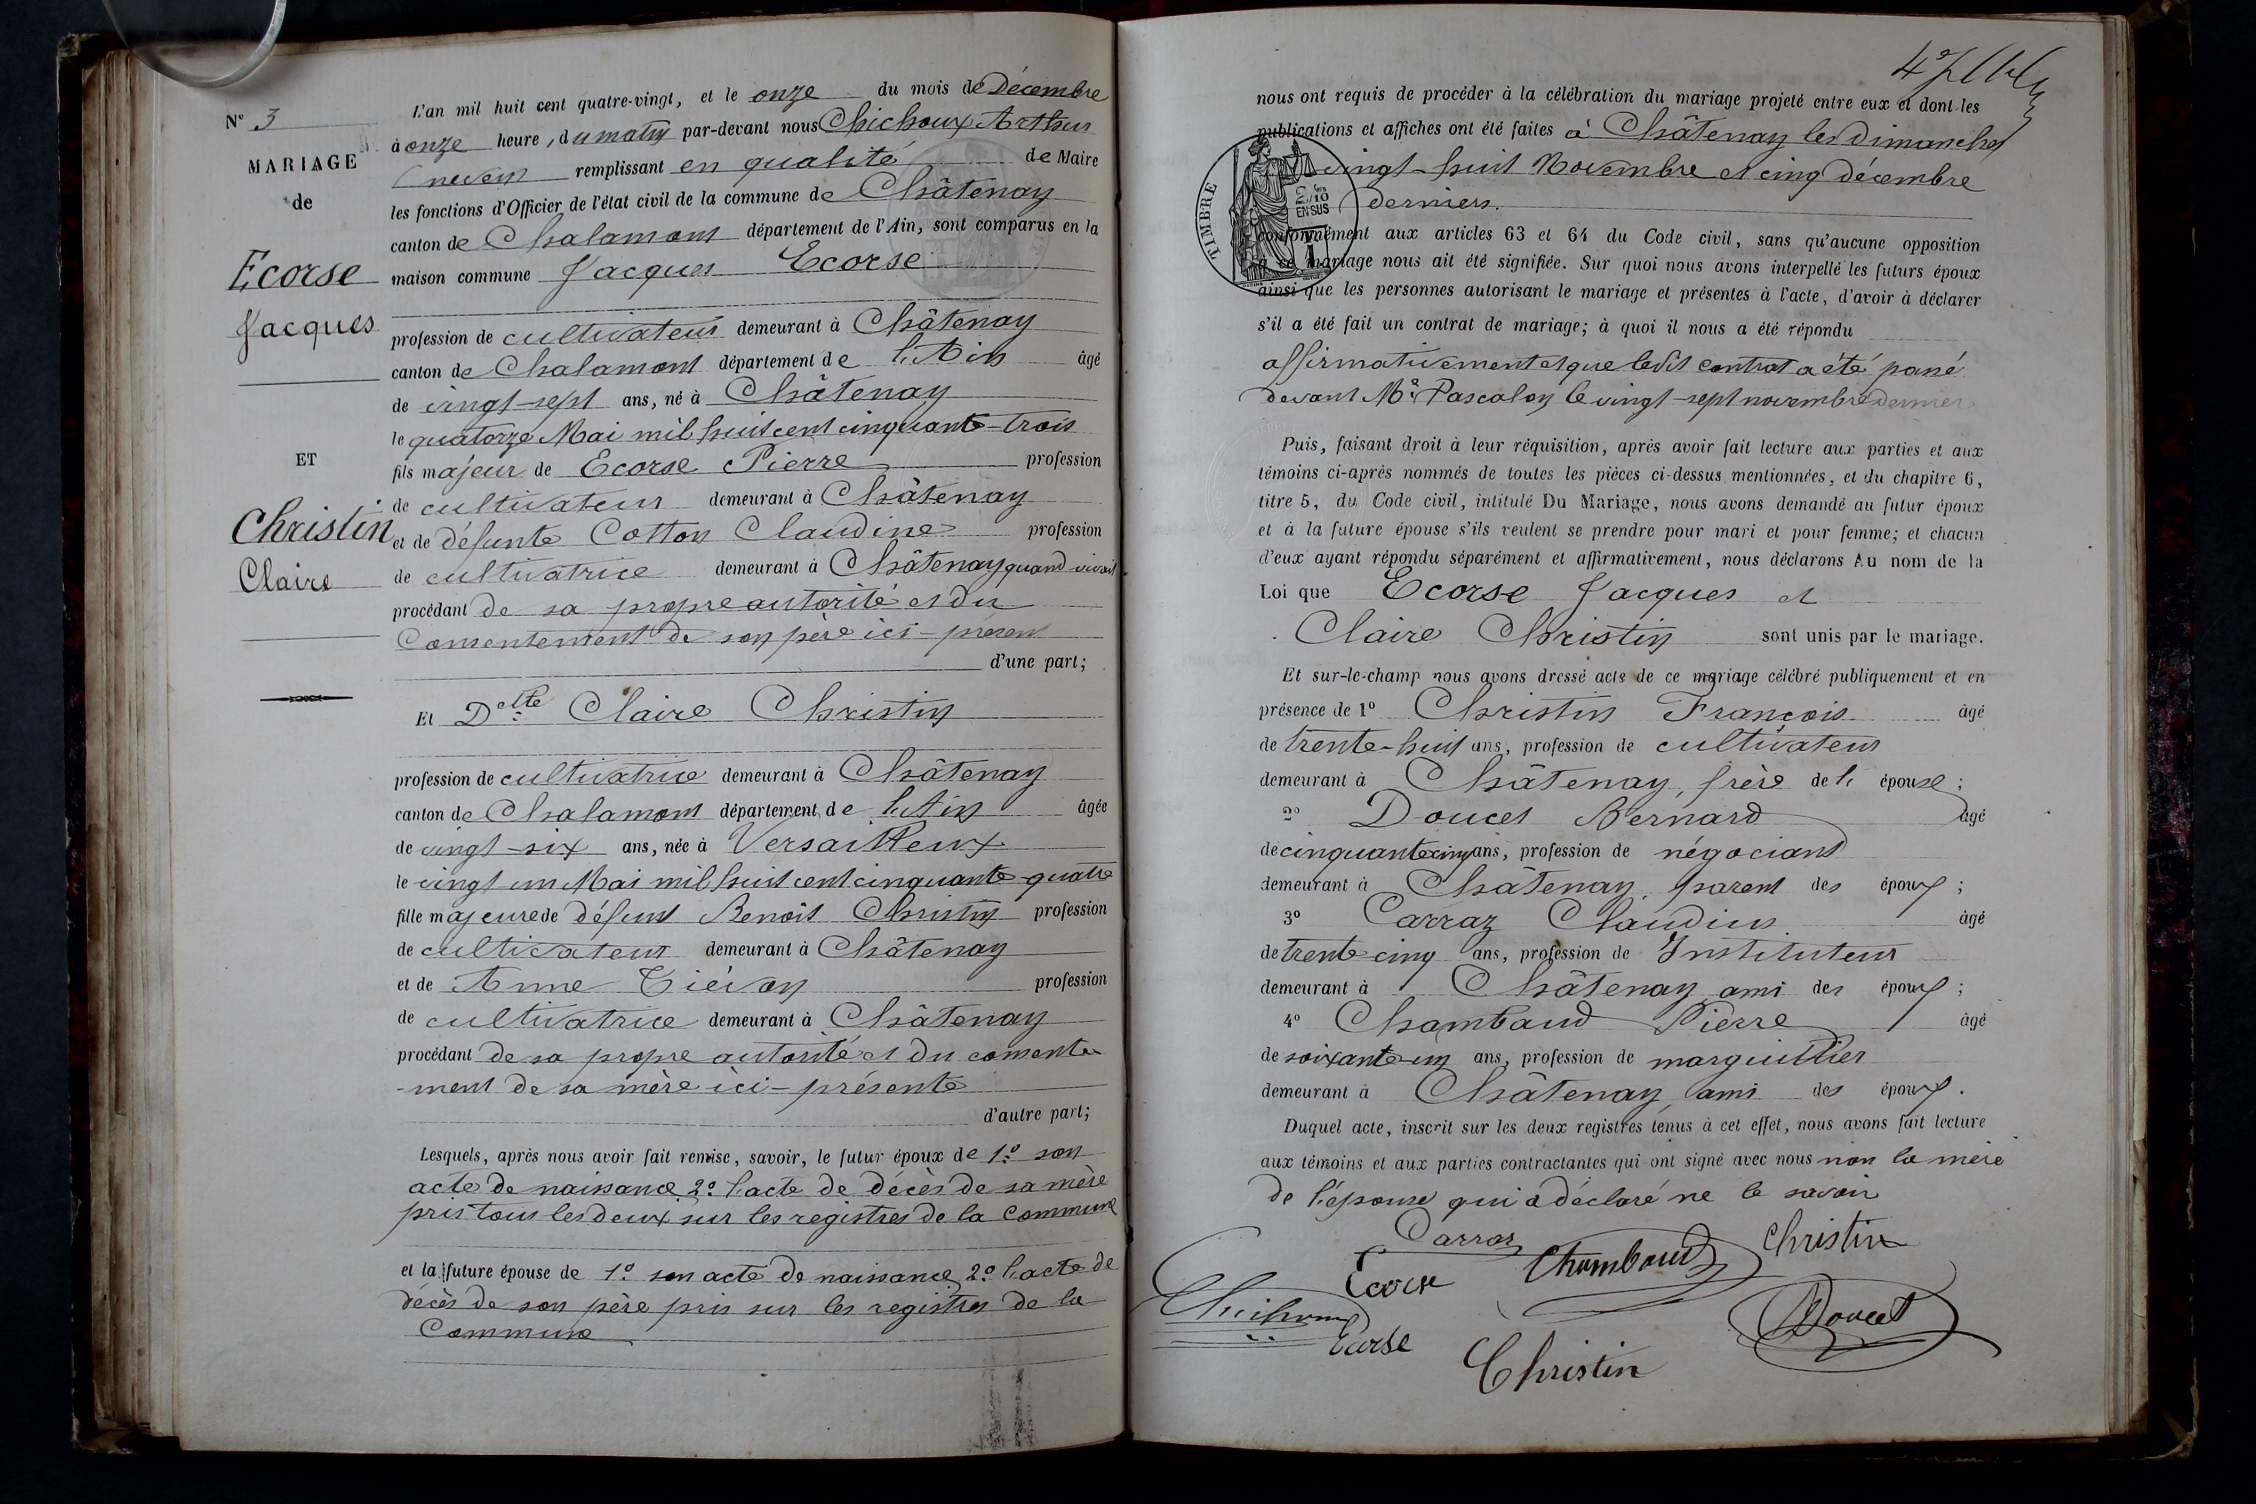 N° 3
MARIAGE
de
Ecorse
Jacques
ET
Christin
Claire
L'an mil huit cent quatre-vingt, et le onze du mois de Décembre
à onze heure, du matin par-devant nous Chichoux Arthur
neveu remplissant en qualité de Maire
les fonctions d'Officier de l'état civil de la commune de Châtenay
canton de Chalamont département de l'Ain, sont comparus en la
maison commune Jacques Ecorse
profession de cultivateur demeurant à Châtenay
canton de Chalamont département de l'Ain âgé
de vingt-sept ans, né à Châtenay
le quatorze Mai mil huit cent cinquante-trois
fils majeur de Ecorse Pierre profession
de cultivateur demeurant à Châtenay
et de défunte Cotton Claudine profession
de cultivatrice demeurant à Châtenay quand vivait
procédant de sa propre autorité et du
Consentement de son père ici-présent
d'une part;
Et Delle Claire Christin
profession de cultivatrice demeurant à Châtenay
canton de Chalamont département de l'Ain âgée
de vingt-six ans, née à Versailleux
le vingt un Mai mil huit cent cinquante-quatre
fille majeure de défunt Benoît Christin profession
de cultivateur demeurant à Châtenay
et de Anne profession
de cultivatrice demeurant à Châtenay
procédant de sa propre autorité et du consente
-ment de sa mère ici-présente
d'autre part;
Lesquels, après nous avoir fait remise, savoir, le futur époux de 1° son
acte de naissance 2° l'acte de décès de sa mère
pris tous les deux sur les registres de la Commune
et la future épouse de 1° son acte de naissance 2° l'acte de
décès de son père pris sur les registres de la
Commune
nous ont requis de procéder à la célébration du mariage projeté entre eux et dont les
publications et affiches ont été faites à Châtenay les dimanches
vingt-huit Novembre et cinq décembre
derniers.
TIMBRE
2/10
EN SUS
conformément aux articles 63 et 64 du Code civil, sans qu'aucune opposition
à ce mariage nous ait été signifiée. Sur quoi nous avons interpellé les futurs époux
ainsi que les personnes autorisant le mariage et présentes à l'acte, d'avoir à déclarer
s'il a été fait un contrat de mariage; à quoi il nous a été répondu
affirmativement et que ledit contrat a été passé
devant Me Pascalon le vingt-sept novembre dernier
Puis, faisant droit à leur réquisition, après avoir fait lecture aux parties et aux
témoins ci-après nommés de toutes les pièces ci-dessus mentionnées, et du chapitre 6,
titre 5, du Code civil, intitulé Du Mariage, nous avons demandé au futur époux
et à la future épouse s'ils veulent se prendre pour mari et pour femme; et chacun
d'eux ayant répondu séparément et affirmativement, nous déclarons Au nom de la
Loi que Ecorse Jacques et
Claire Christin sont unis par le mariage.
Et sur-le-champ nous avons dressé acte de ce mariage célébré publiquement et en
présence de 1° Christin François âgé
de trente-huit ans, profession de cultivateur
demeurant à Châtenay, frère de l' épouse;
2° Doucet Bernard âgé
de cinquante cinq ans, profession de négociant
demeurant à Châtenay, parent des époux;
3° Carraz Claudius âgé
de trente cinq ans, profession de Instituteur
demeurant à Châtenay ami des époux;
4° Chambaud Pierre âgé
de soixante-un ans, profession de marguillier
demeurant à Châtenay, ami des époux.
Duquel acte, inscrit sur les deux registres tenus à cet effet, nous avons fait lecture
aux témoins et aux parties contractantes qui ont signé avec nous non la mère
de l'épouse qui a déclaré ne le savoir
Carraz
Christin
Ecorse
Chambaud
Chichoux
Doucet
Ecorse
Christin